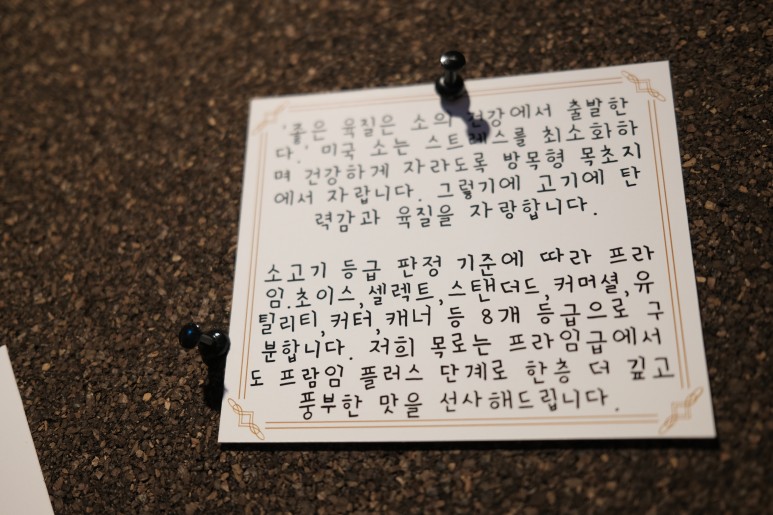 '좋은 육질은 소의 건강에서 출발한
다.' 미국 소는 스트레스를 최소화하
며 건강하게 자라도록 방목형 목초지
에서 자랍니다. 그렇기에 고기에 탄
력감과 육질을 자랑합니다.
소고기 등급 판정 기준에 따라 프라
임.초이스,셀렉트,스탠더드,커머셜,유
틸리티,커터,캐너 등 8개 등급으로 구
분합니다. 저희 목로는 프라임급에서
도 프람임 플러스 단계로 한층 더 깊고
풍부한 맛을 선사해드립니다.